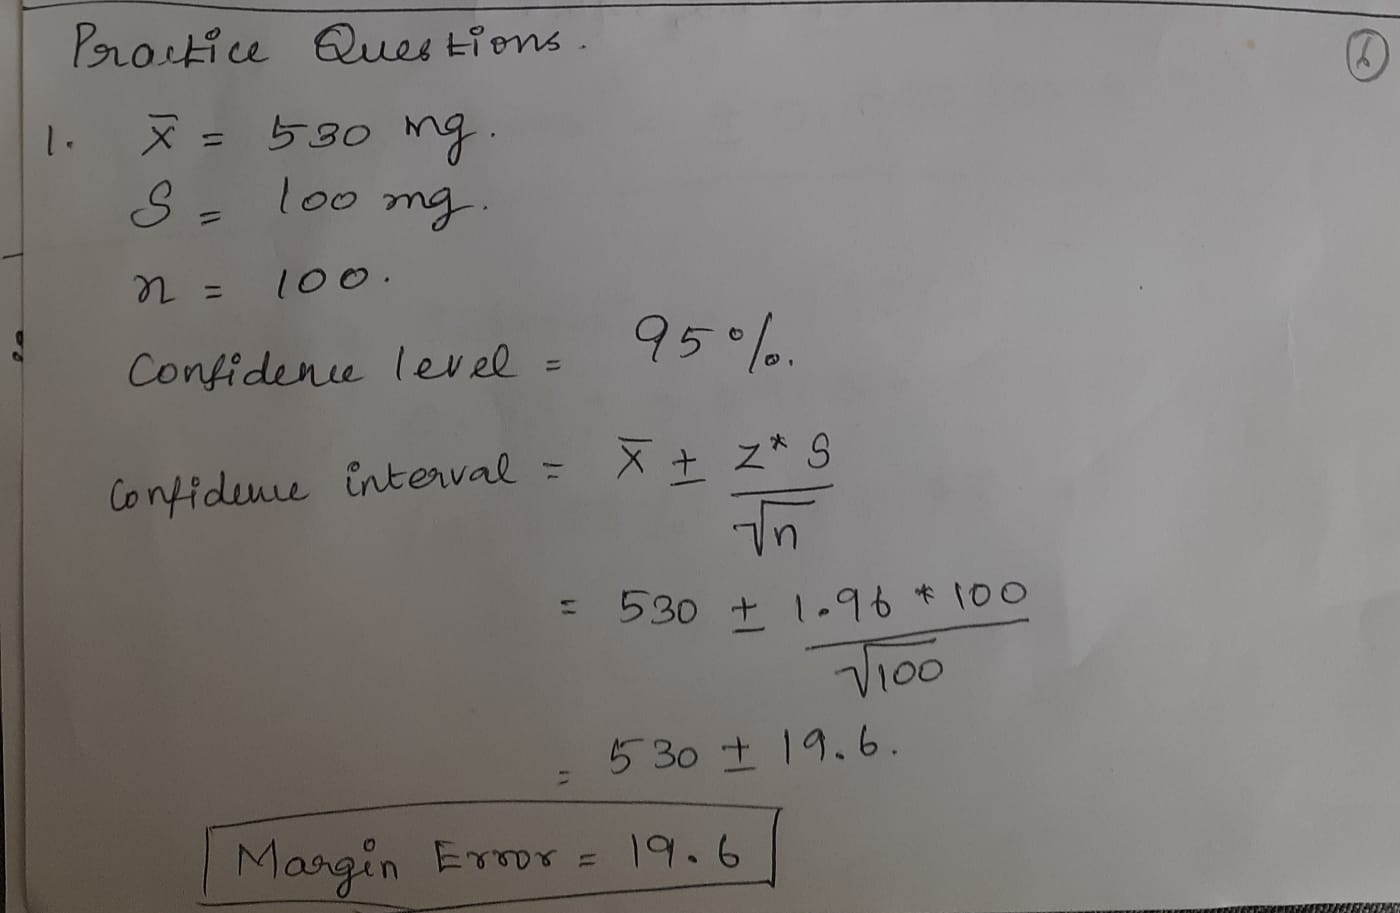 Practice Questions.
6
1. x̄ = 530 mg.
S = 100 mg.
n = 100.
Confidence level = 95%.
Confidence interval = x̄ ± z* S / √n
= 530 ± 1.96 * 100 / √100
= 530 ± 19.6.
Margin Error = 19.6